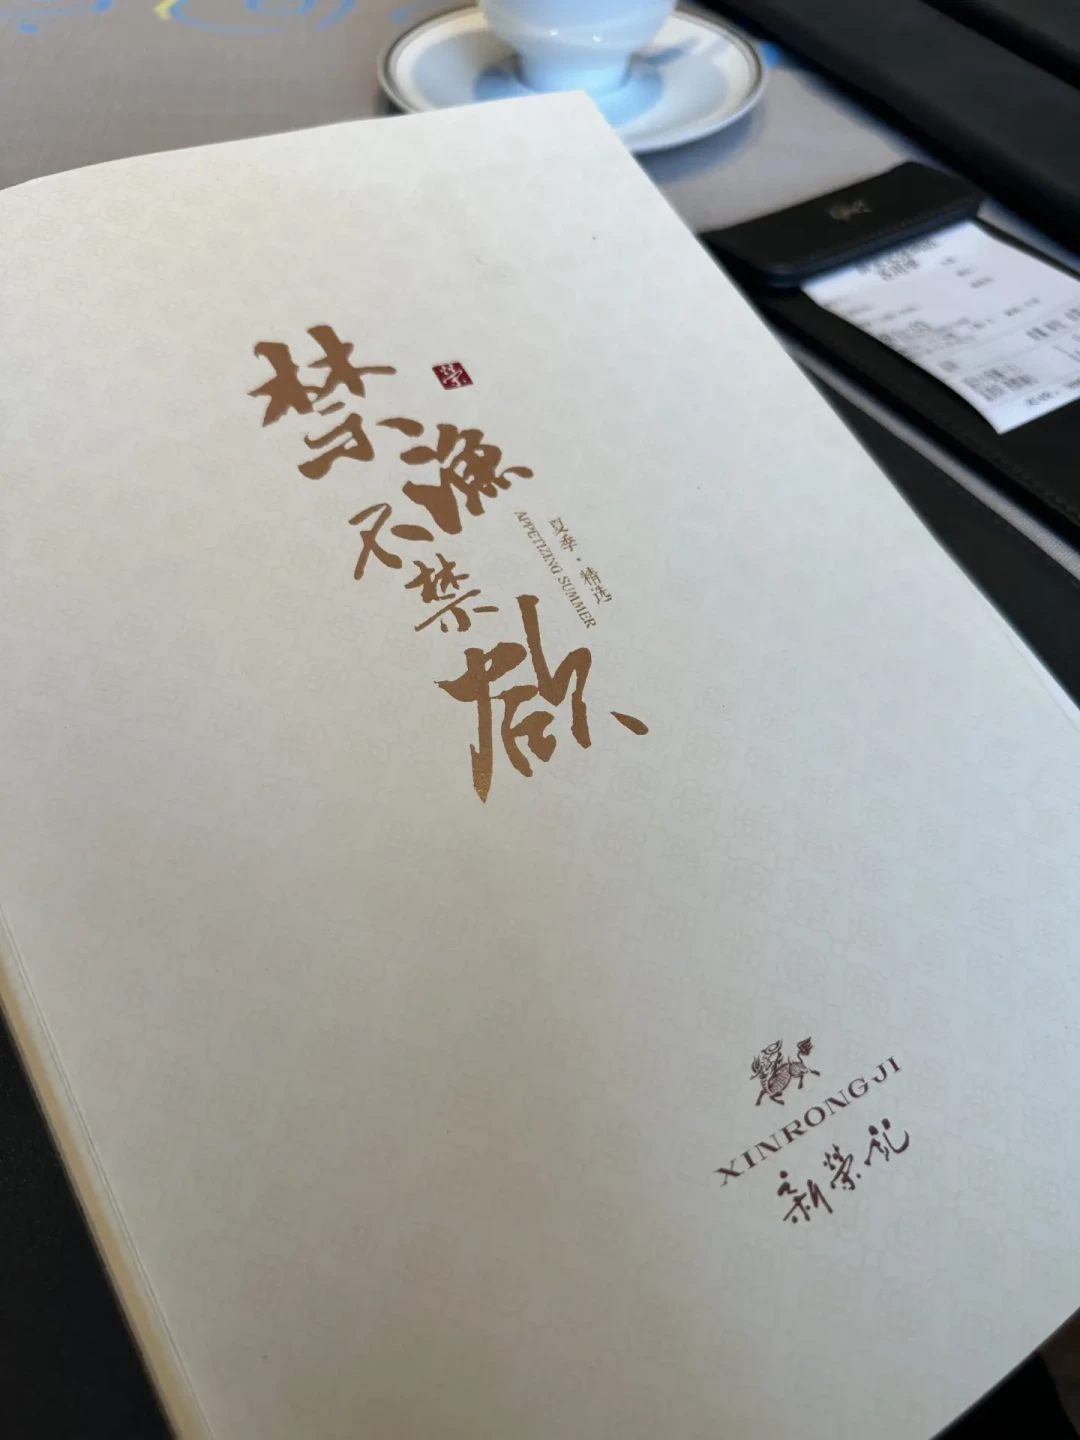 禁渔
不禁
欲
榮
夏季·精选
APPETIZING SUMMER
XINRONGJI
新榮記